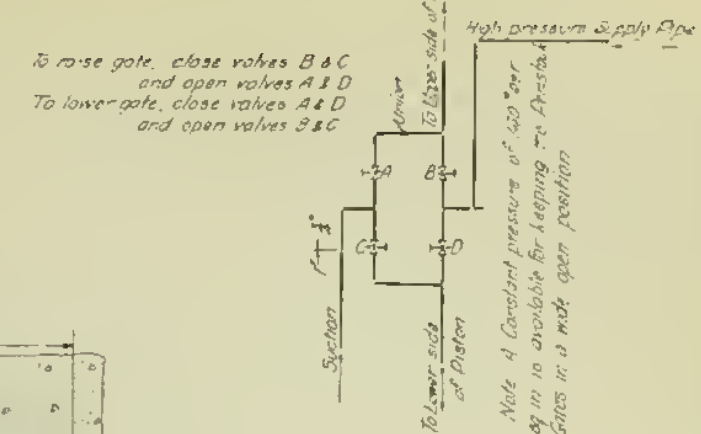 To raise gate, close valves B & C
and open valves A & D
To lower gate, close valves A & D
and open valves B & C
High pressure Supply Pipe
Union
To Upper side of
A
B
C
D
Suction
To Lower side
of Piston
Note A Constant pressure of per
sq in is available for keeping the Penstock
Gates in a wide open position